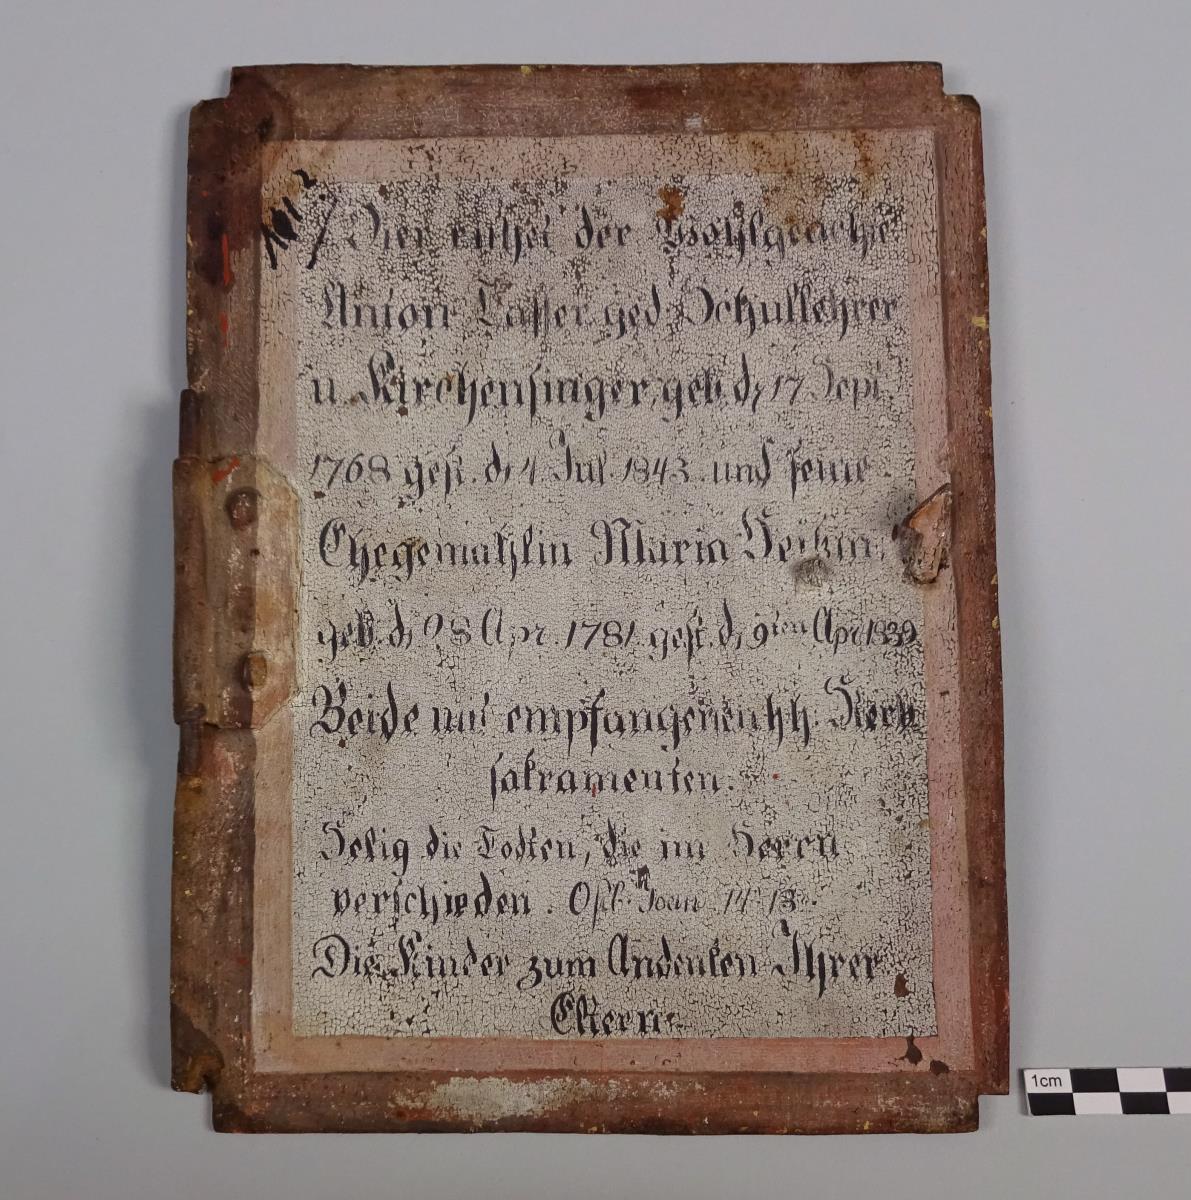 1012
Hier ruhet der Wohlgeachte
Anton Lasser ged Schullehrer
u. Kirchensinger, geb. d. 17 Sept
1768 gest. d. 4 Jul 1843. und seine
Ehegemahlin Maria
geb. d. 28 Apr. 1781. gest. d. 9ten Apr 1839.
Beide mit empfangenen hh. Sterb
sakramenten.
Selig die Todten, die im Herrn
verschieden. Off. Joan 14. 13.
Die Kinder zum Andenken Ihrer
Eltern.
1cm